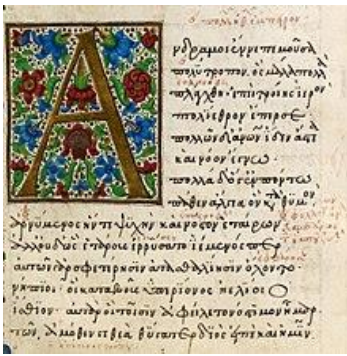 Α
νδρα μοι ἔννεπε μοῦσα
πολύτροπον, ὃς μάλα πολλὰ
πλάγχθη· ἐπεὶ τροίης ἱερὸν
πτολίεθρον ἔπερσε
πολλῶν δ' ἀνῶν ἴδεν ἄστεα
καὶ νόον ἔγνω·
πολλὰ δ' ὅγ' ἐν πόντω
πάθεν ἄλγεα ὃν κατὰ θυμὸν
ἀρνύμενος ἥν τε ψυχὴν καὶ νόστον ἑταίρων
ἀλλ' οὐδ' ὣς ἑτάρους ἐρρύσατο ἱέμενός περ
αὐτῶν γὰρ σφετέρησιν ἀτασθαλίησιν ὄλοντο·
νήπιοι· οἳ κατὰ βοῦς ὑπερίονος ἠελίοιο
ἤσθιον· αὐτὰρ ὁ τοῖσιν ἀφείλετο νόστιμον ἦμαρ
τῶν ἁμόθεν γε θεὰ θύγατερ διὸς εἰπὲ καὶ ἡμῖν.